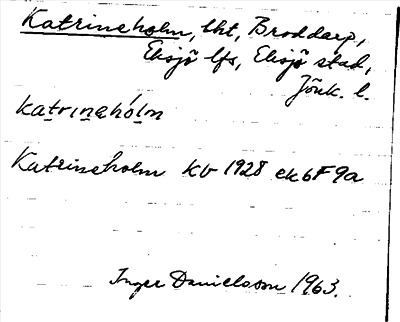 Katrineholm, lht, Broddarp,
Eksjö lfs, Eksjö stad,
Jönk. l.
katrinehólm
Katrineholm kb 1928 ek 6F 9a
Inger Danielsson 1963.